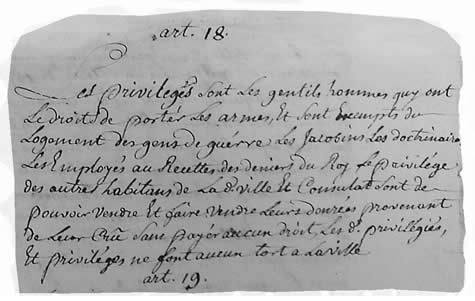 art. 18.
Les privilegés sont Les gentils hommes quy ont
Le droit de porter Les armes, Et sont Exempts du
Logement des gens de guerre Les Jacobins Les doctrinaires
Les Employés au Recettes des deniers du Roy Le privilege
des autres habitens de La dt ville Et Consulat sont de
pouvoir vendre Et faire vendre Leurs denrées provenant
de Leur Crû sans payér aucun droit, Les ds privilégiés,
Et privilégés ne font aucun tort a La ville
art. 19.